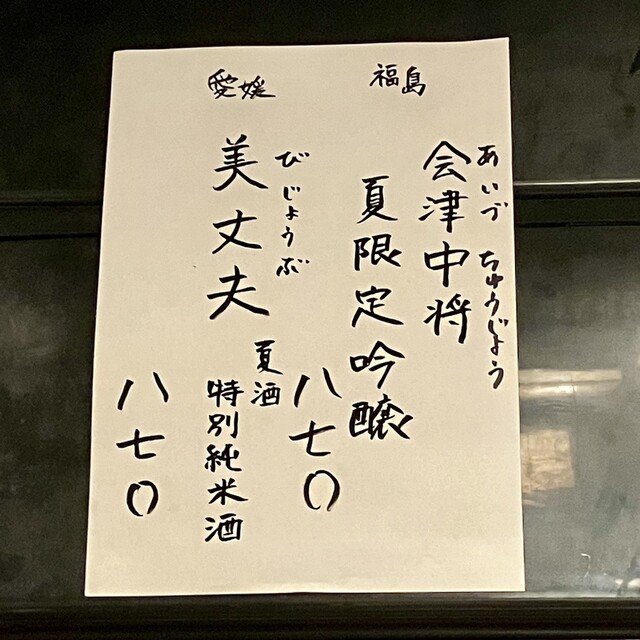 福島
あいづ ちゅうじょう
会津中将
夏限定吟醸
八七〇
愛媛
びじょうぶ
美丈夫
夏酒
特別純米酒
八七〇